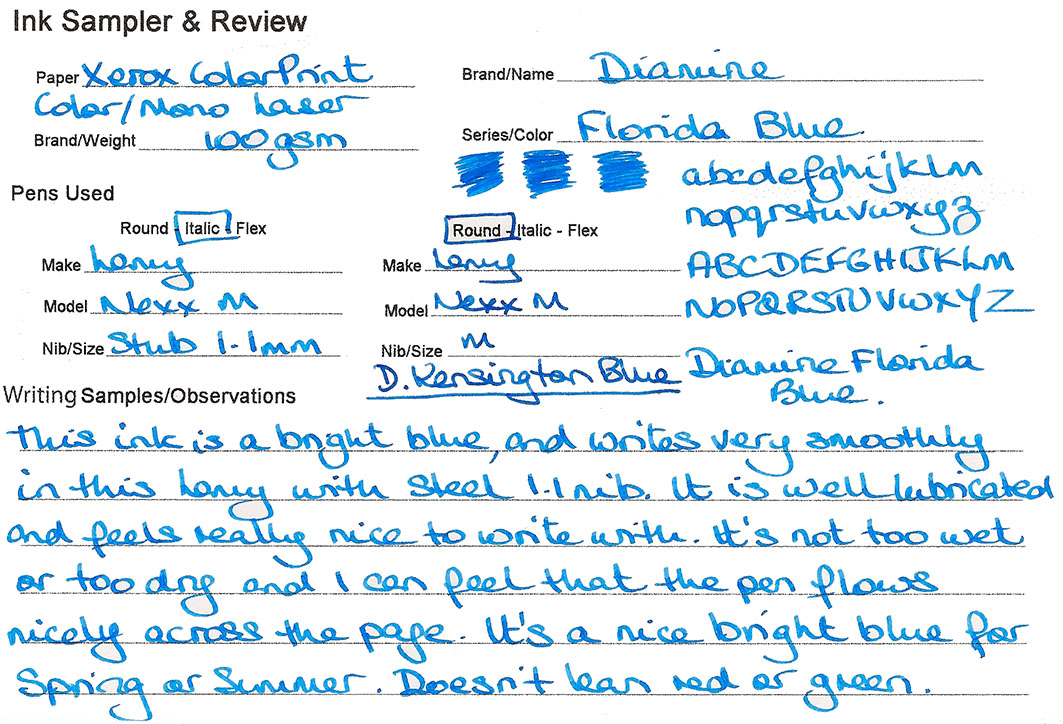 Ink Sampler & Review
Paper Xerox ColorPrint
Color/Mono Laser
Brand/Weight 100gsm
Brand/Name Diamine
Series/Color Florida Blue.
abcdefghijklm
nopqrstuvwxyz
ABCDEFGHIJKLM
NOPQRSTUVWXYZ
Diamine Florida
Blue.
Pens Used
Round - Italic - Flex
Make Lamy
Model Nexx M
Nib/Size Stub 1.1mm
Round - Italic - Flex
Make Lamy
Model Nexx M
Nib/Size M
D. Kensington Blue
Writing Samples/Observations
This ink is a bright blue, and writes very smoothly
in this Lamy with steel 1.1 nib. It is well lubricated
and feels really nice to write with. It's not too wet
or too dry and I can feel that the pen flows
nicely across the page. It's a nice bright blue for
Spring or Summer. Doesn't lean red or green.